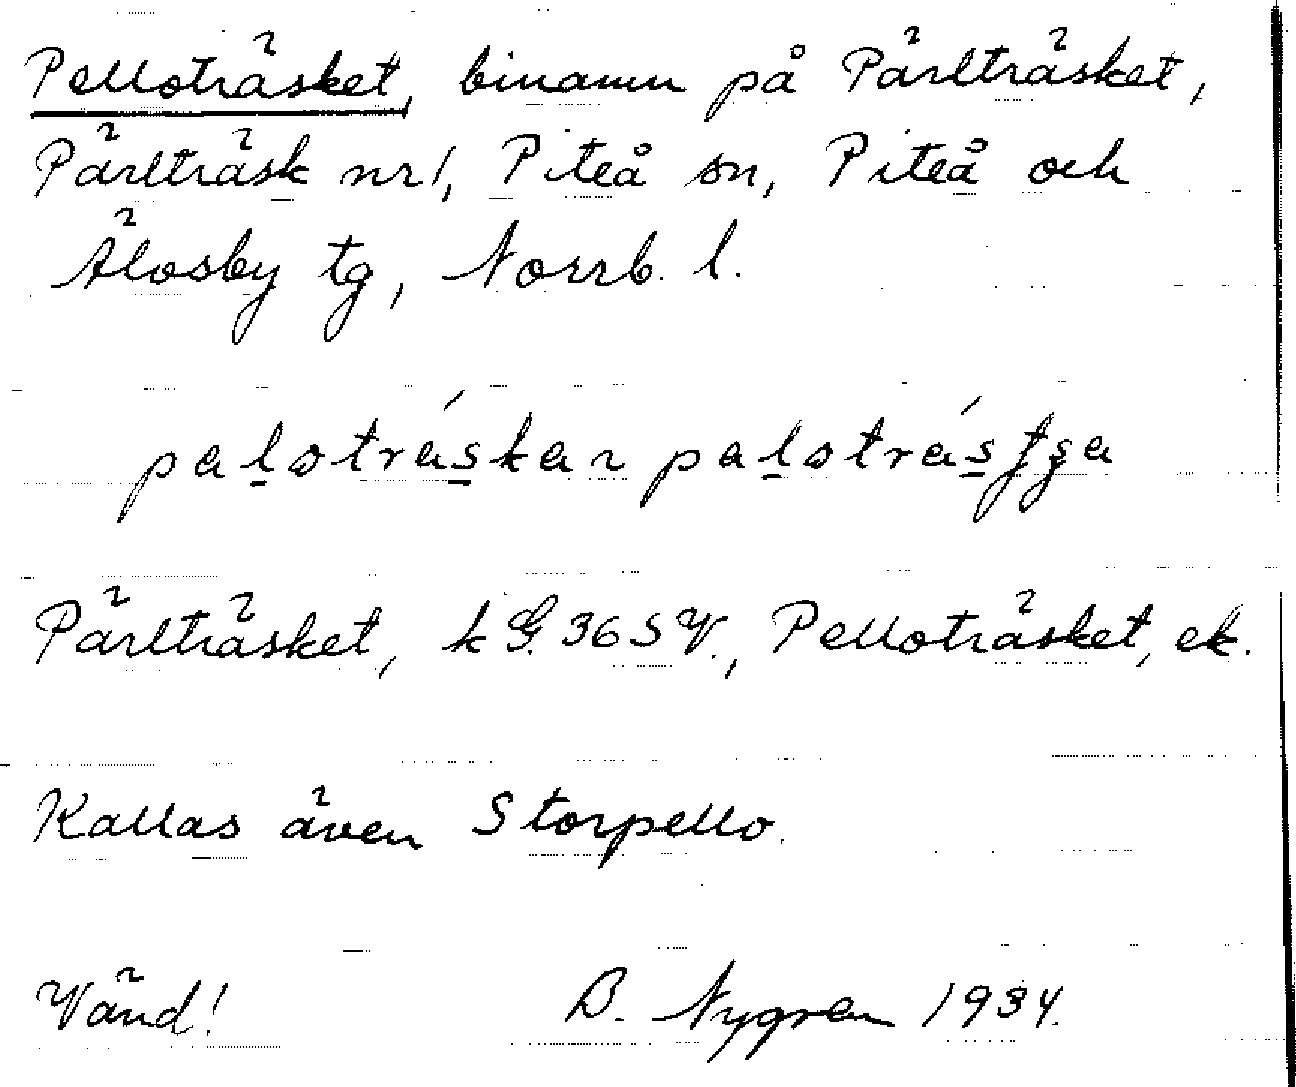 Pelloträsket, binamn på Pärlträsket,
Pärlträsk nr 1, Piteå sn, Piteå och
Älvsby tg, Norrb. l.
Pärlträsket, k G. 36 S V., Pelloträsket, ek.
Kallas även Storpello.
Vänd! B. Nygren 1934.